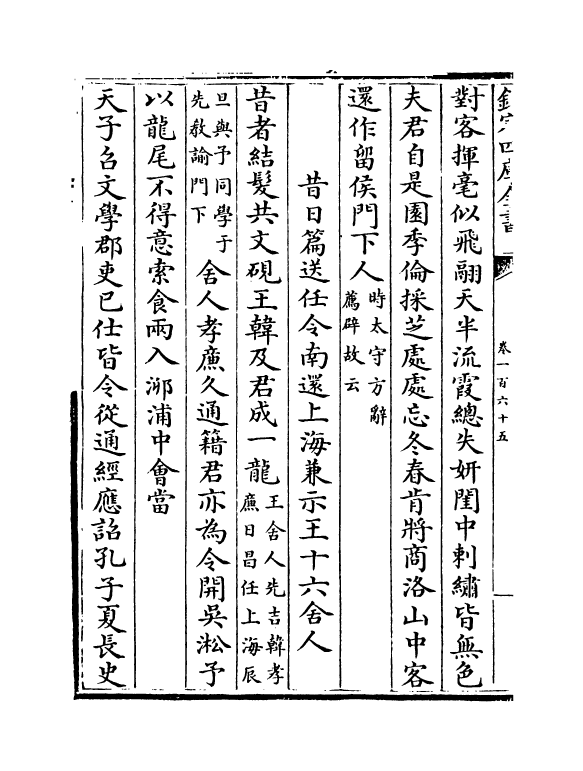 欽定四庫全書
卷一百六十五
對客揮毫似飛翮天半流霞總失妍閨中刺繡皆無色
夫君自是園季倫採芝處處忘冬春肯將商洛山中客
還作留侯門下人時太守方辭薦辟故云
昔日篇送任令南還上海兼示王十六舍人
昔者結髮共文硯王韓及君成一龍王舍人先吉韓孝廉日昌任上海辰
旦與予同學于先教諭門下舍人孝廉久通籍君亦為令開吳淞予
以龍尾不得意索食兩入㳌浦中會當
天子召文學郡吏已仕皆令從通經應詔孔子夏長史